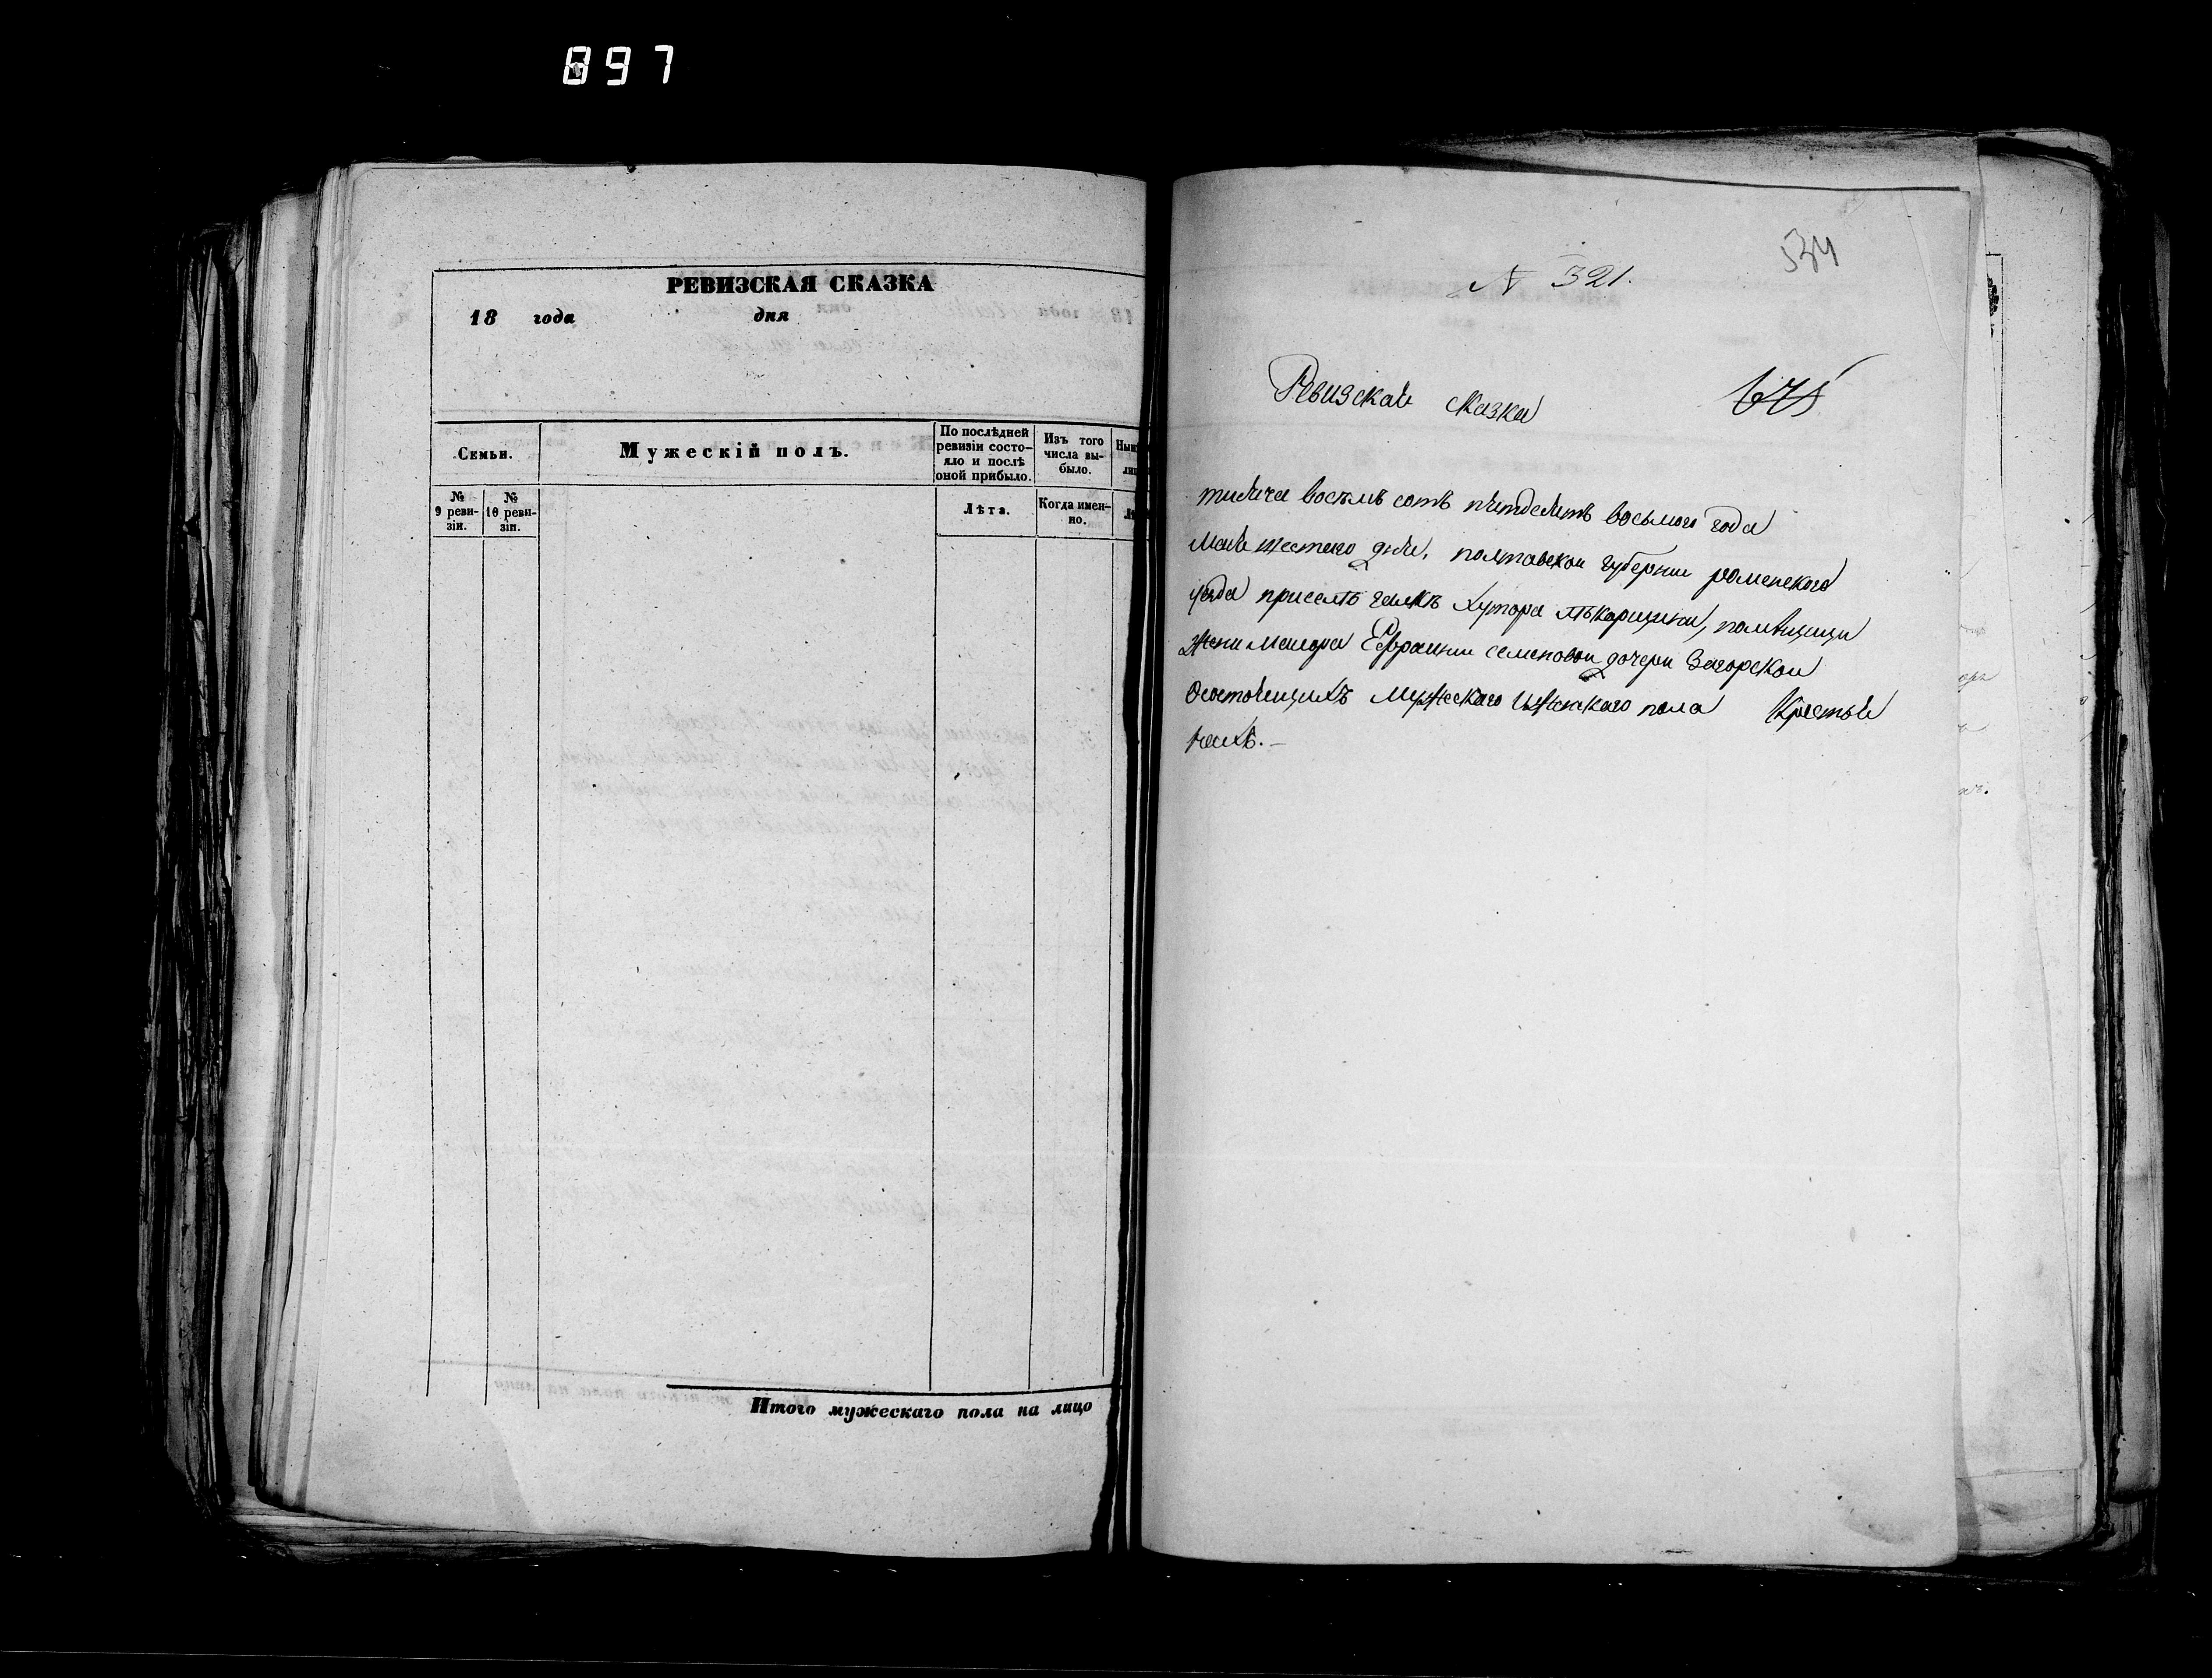 897
РЕВИЗСКАЯ СКАЗКА
18 года дня
Семьи.
Мужескій полъ.
По послѣдней ревизіи состо-
яло и послѣ оной прибыло.
Изъ того числа вы-
было.
№ 9 реви-
зіи.
№ 10 реви-
зіи.
Лѣта.
Когда имен-
но.
Итого мужескаго пола на лицо
534
N 321.
Ревизская сказка
тисяча восемь сотъ пятдесятъ восьмого года
мая шестаго дня, полтавской губерніи роменского
уезда хутора помѣщици
жени маиора Евфросинии семеновой дочери Загорской
Осостоящихъ мужеского иженскаго пола Крестья
нахъ.–